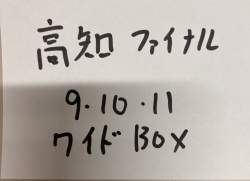 高知 ファイナル
9・10・11
ワイド BOX